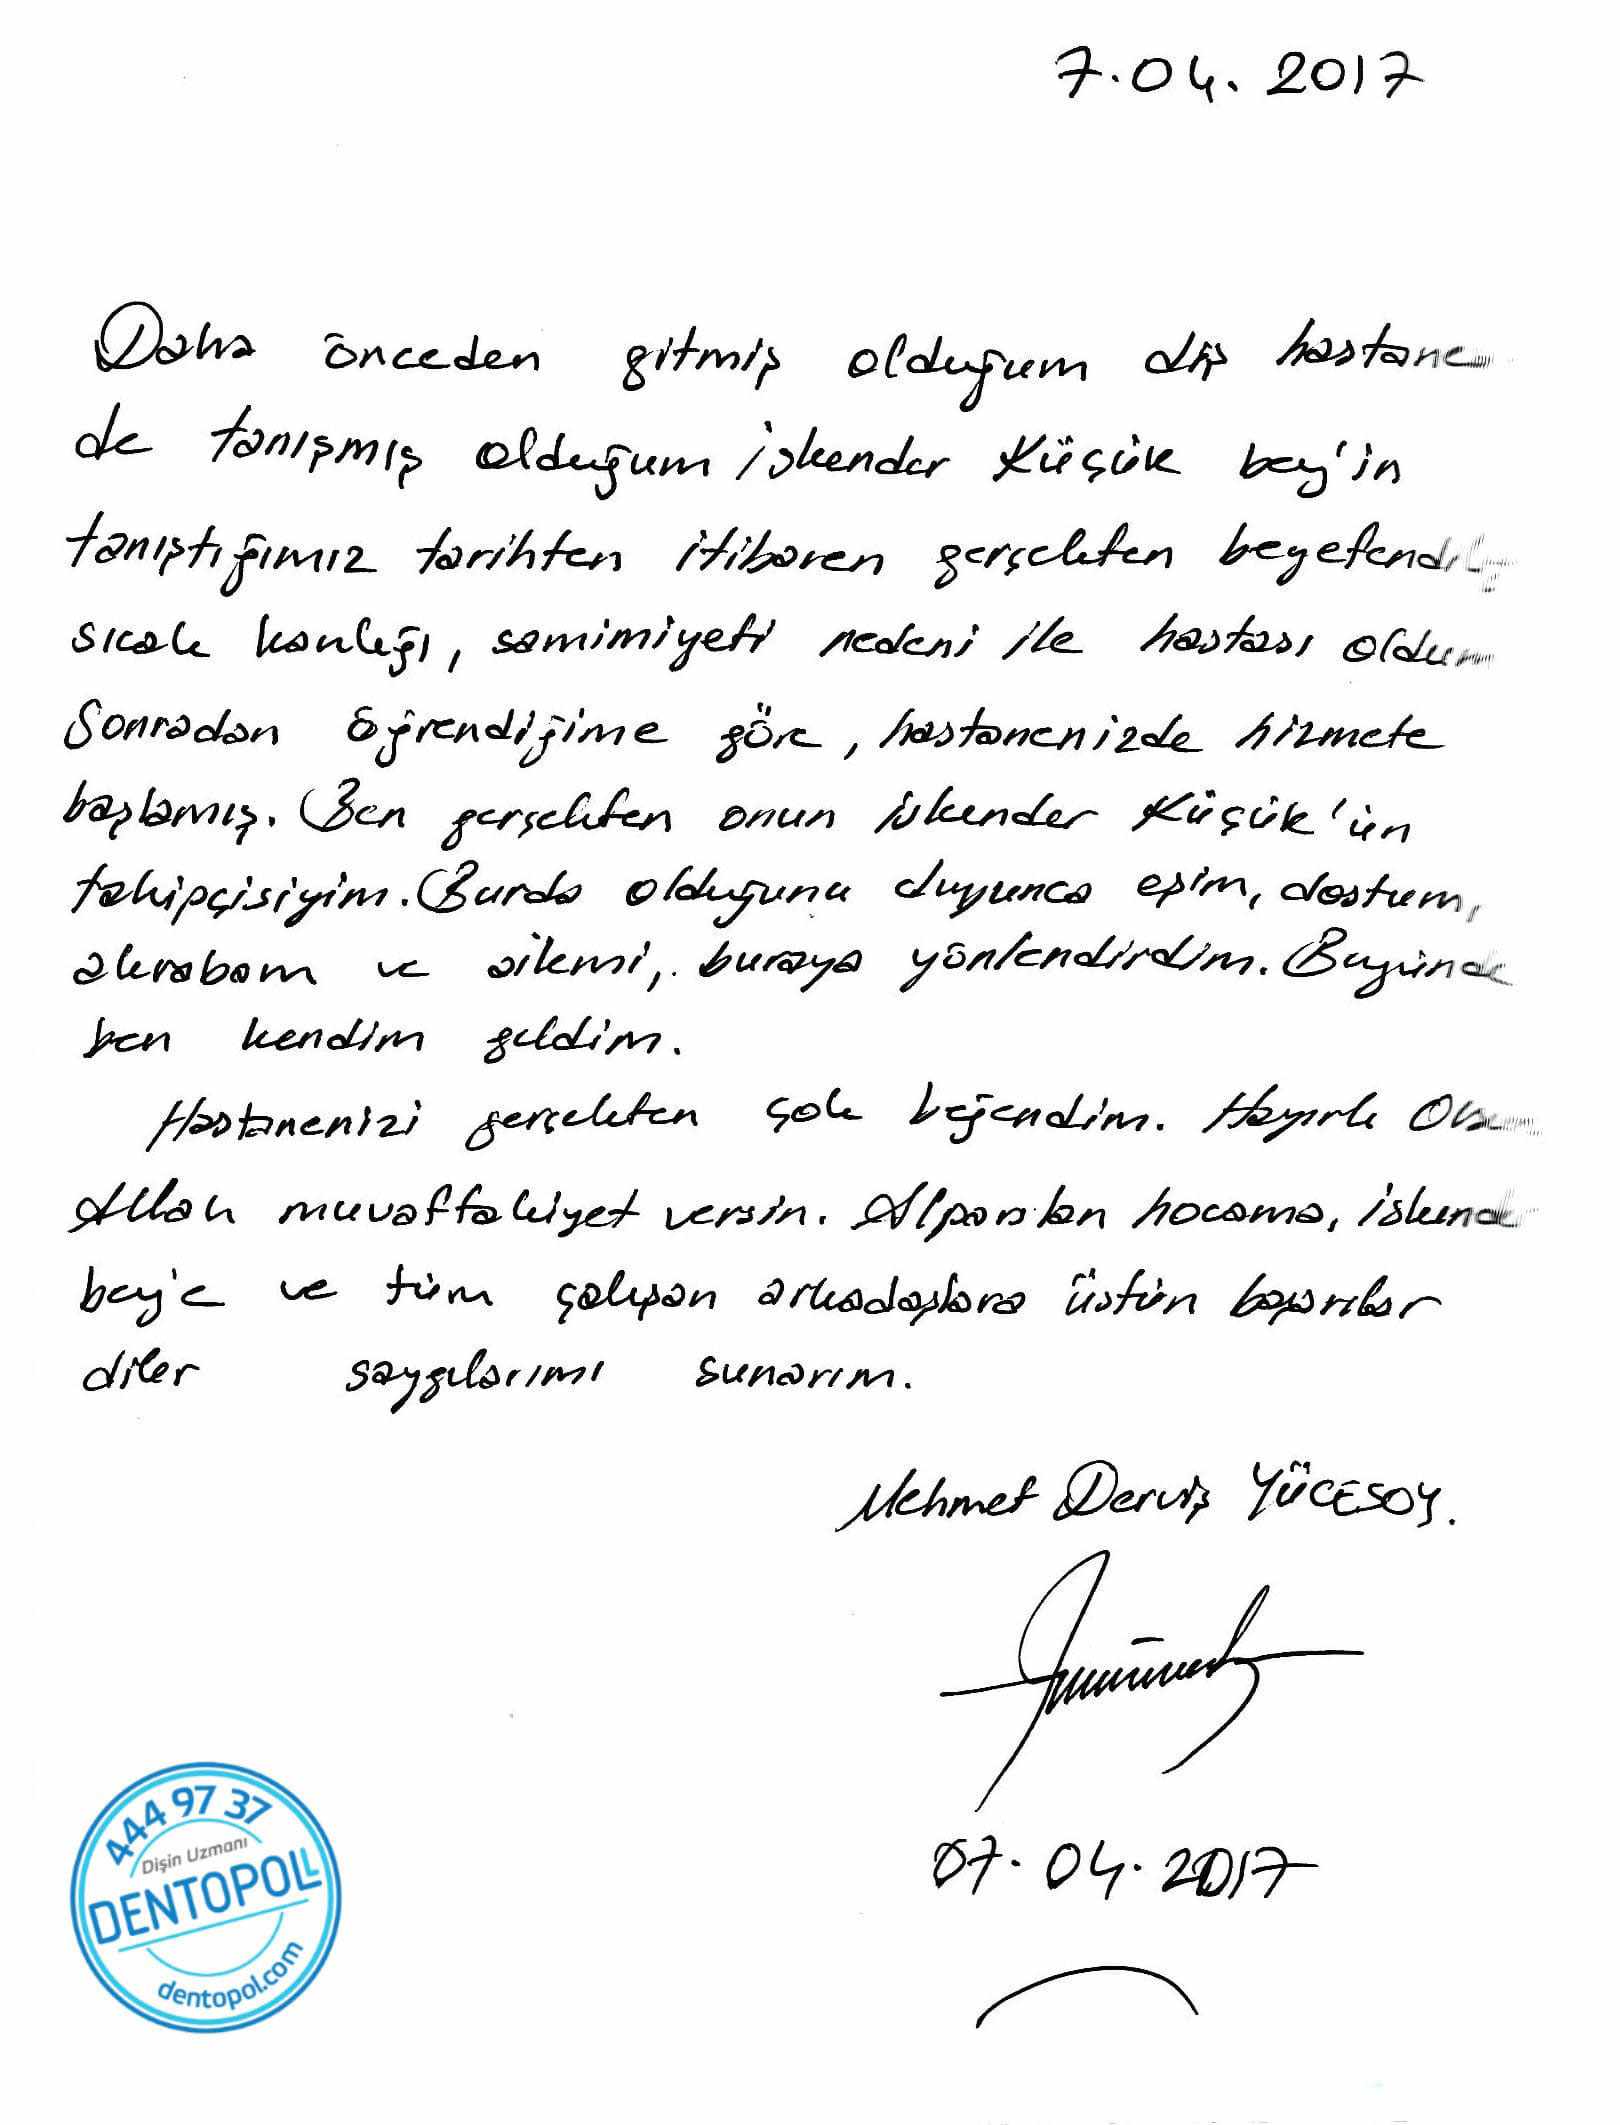 7.04.2017
Daha önceden gitmiş olduğum diş hastane
de tanışmış olduğum İskender Küçük bey'in
tanıştığımız tarihten itibaren gerçekten
sıcak kanlığı, samimiyeti nedeni ile hastası oldum
Sonradan öğrendiğime göre, hastanenizde hizmete
başlamış. Ben gerçekten onun İskender Küçük'ün
takipçisiyim. Burda olduğunu duyunca eşim, dostum,
akrabam ve ailemi, buraya yönlendirdim. Bugünde
ben kendim geldim.
Hastanenizi gerçekten çok beğendim. Hayırlı Olsun
Allah muvaffakiyet versin. Alparslan hocama, İskender
bey'e ve tüm çalışan arkadaşlara üstün başarılar
diler saygılarımı sunarım.
Mehmet Derviş YÜCESOY.
07.04.2017
444 97 37
Dişin Uzmanı
DENTOPOL
dentopol.com